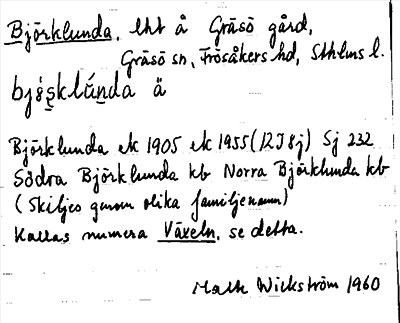 Björklunda, lht å Gräsö gård,
Gräsö sn, Frösåkers hd, Sthlms l.
bjö́ṣklúnda ä
Björklunda ek 1905 ek 1955 (12J8j) Sj 232
Södra Björklunda kb Norra Björklunda kb
(Skiljes genom olika familjenamn)
Kallas numera Växeln, se detta.
Wickström 1960